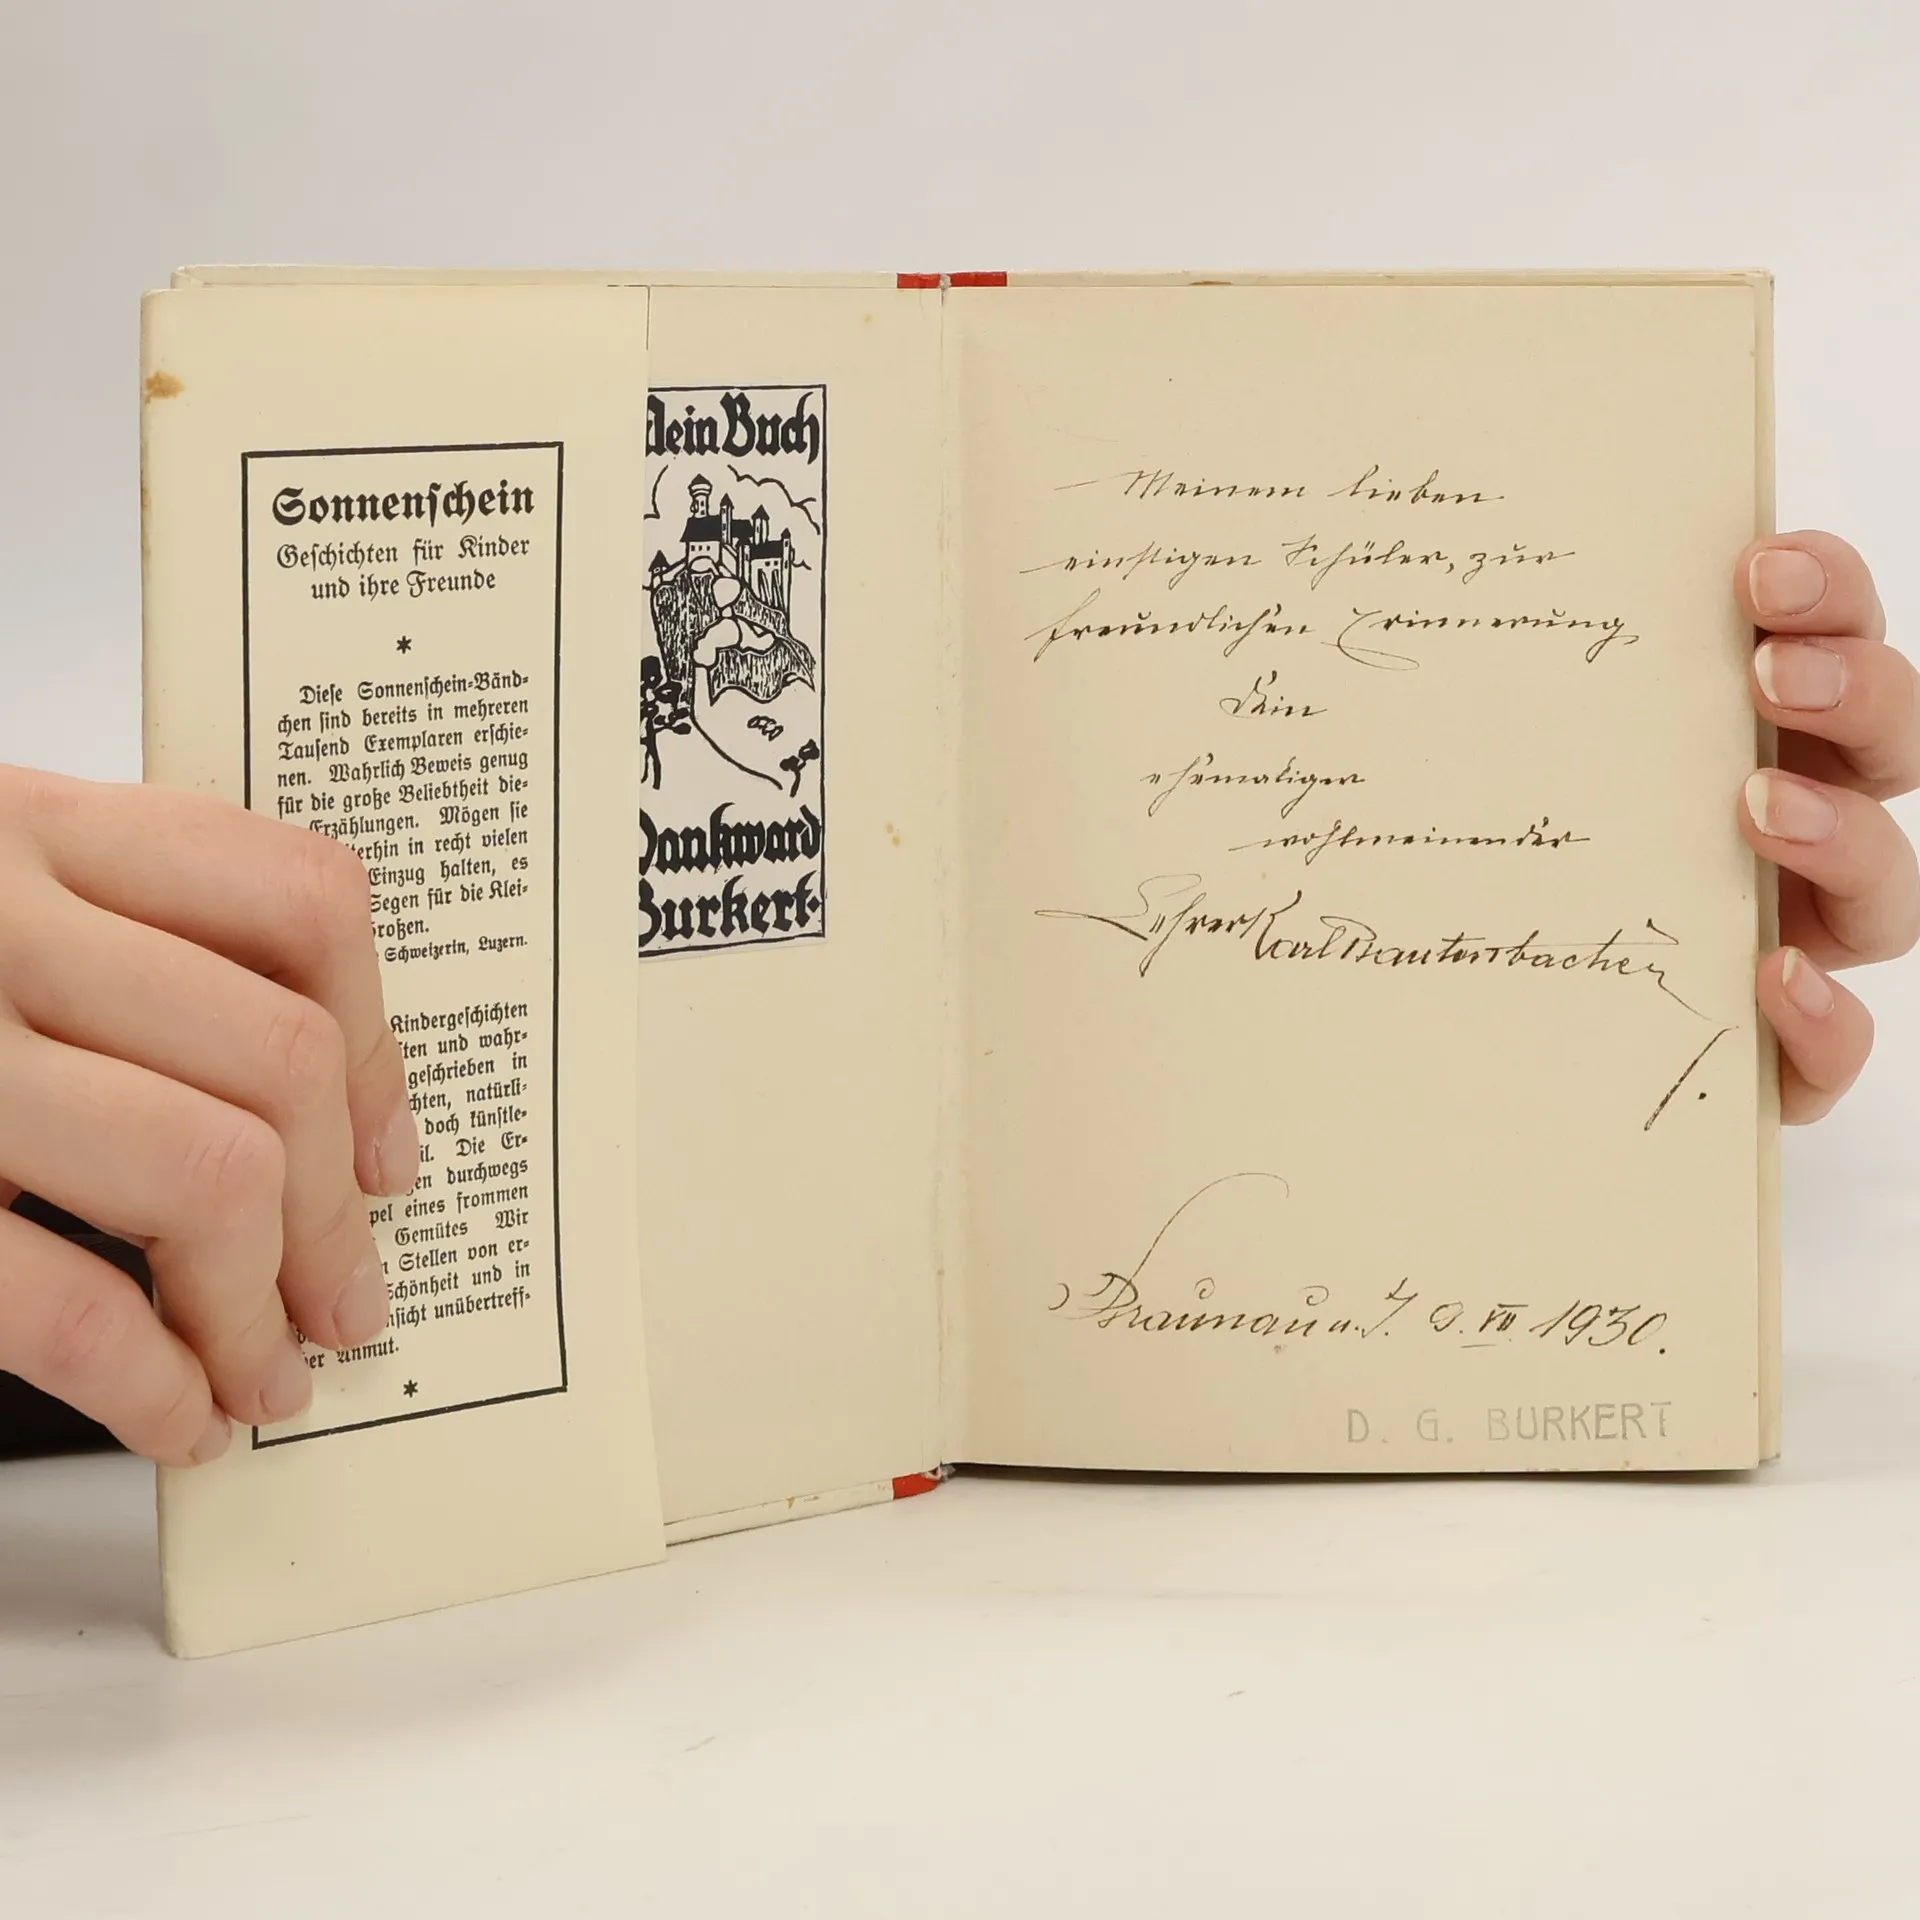 Sonnenschein
Geschichten für Kinder
und ihre Freunde
*
Diese Sonnenschein-Bänd-
chen sind bereits in mehreren
Tausend Exemplaren erschie-
nen. Wahrlich Beweis genug
für die große Beliebtheit die-
Erzählungen. Mögen sie
terhin in recht vielen
Einzug halten, es
Segen für die Klei-
Großen.
Schweizerin, Luzern.
Kindergeschichten
ten und wahr-
geschrieben in
chten, natürli-
doch künstle-
il. Die Er-
en durchwegs
pel eines frommen
Gemütes Wir
n Stellen von er-
Schönheit und in
nsicht unübertreff-
er Anmut.
*
Mein Buch
Dankward
Burkert.
Meinem lieben
einstigen Schüler, zur
freundlichen Erinnerung
Dein
ehemaliger
wohlmeinender
Lehrer Karl
Braunau a. I. 9. VII. 1930.
D. G. BURKERT